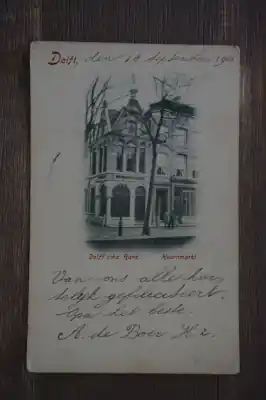 Delft, den 18 September 190
Delftsche Bank. Koornmarkt
Van ons alle har
telijk gefeliciteert.
Ga het beste.
A. de Boer Hz.